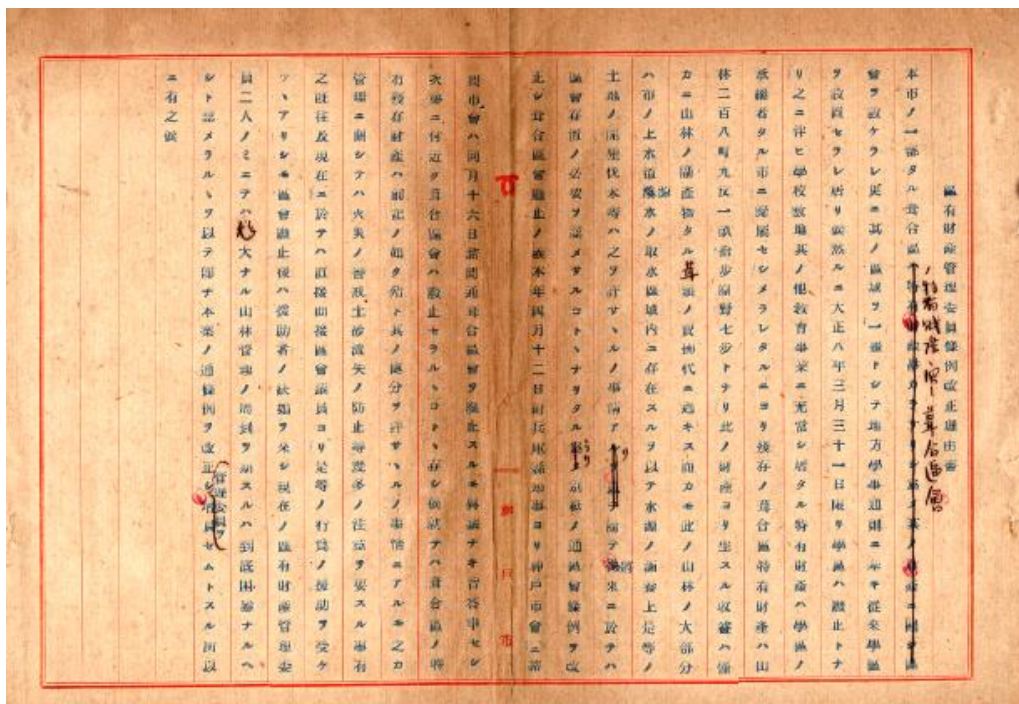 區有財產管理委員條例改正理由書
本市ノ一部タル葺合區
ノ特有財產ニ關シ葺合區會
會ヲ設ケラレ更ニ其ノ區域ヲ一區トシテ地方學事通則ニ基キ從來學區
ヲ設置セラレ居リ候然ルニ大正八年三月三十一日限リ學區ハ廢止トナ
リ之ニ伴ヒ學校敷地其ノ他教育事業ニ充當シ居タル特有財產ハ學區ノ
承繼者タル市ニ歸屬セシメラレタルニヨリ殘存ノ葺合區特有財產ハ山
林二百八町九反一畝拾步原野七步トナリ此ノ財產ヨリ生スル收益ハ僅
カニ山林ノ副產物タル茸類ノ賣拂代ニ過キス而カモ此ノ山林ノ大部分
ハ市ノ上水道水源ノ取水區域內ニ存在スルヲ以テ水源ノ涵養上是等ノ
土地ノ開墾伐木等ハ之ヲ許サヽルノ事情アリ
テ將來ニ於テハ
區會存置ノ必要ヲ認メサルコトヽナリタル
ノ通區會條例ヲ改
止シ葺合區會廢止ノ義本年四月十二日附兵庫縣知事ヨリ神戶市會ニ諮
問市會ハ同月十六日諮問通葺合區會ヲ廢止スルモ異議ナキ旨答申セシ
次第ニ付近ク葺合區會ハ廢止セラルヽコトヽ存シ候就テハ葺合區ノ特
有殘存財產ハ前記ノ如ク殆ト其ノ處分ヲ許サヽルノ事情ニアルモ之カ
管理ニ關シテハ火災ノ警戒土砂流失ノ防止等幾多ノ注意ヲ要スル事有
之既往及現在ニ於テハ直接間接區會議員ヨリ是等ノ行爲ノ援助ヲ受ケ
ツヽアリシモ區會廢止後ハ援助者ノ缺損ヲ來シ現在ノ區有財產管理委
員二人ノミニテハ
大ナル山林管理ノ周到ヲ期スルハ到底困難ナルヘ
シト認メラルヽヲ以テ即チ本案ノ通條例ヲ改正シ管理委員ヲ增員セムトスル所以
ニ有之候
神戶市